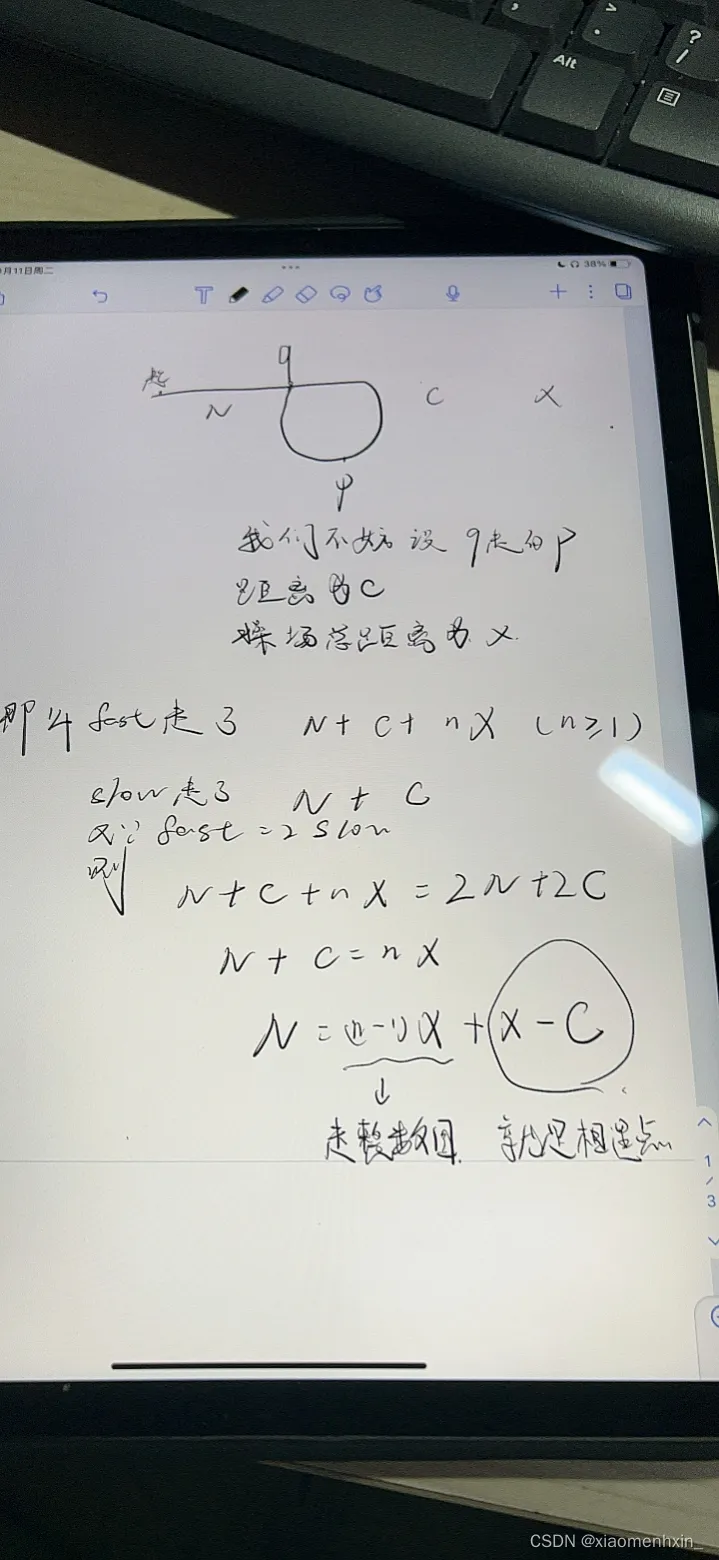 Alt
?
/
月11日周二
38%
T
q
起
N
C
X
p
我们不妨设 q走的p
距离为C
操场总距离为X
即 fast走了 N + C + nX (n≥1)
slow走了 N + C
又∵ fast = 2 slow
则
N+C+nX = 2N+2C
N + C = nX
N = (n-1)X + X - C
↓
走整数圈. 就是相遇点
1
/
3
CSDN @xiaomenhxin_